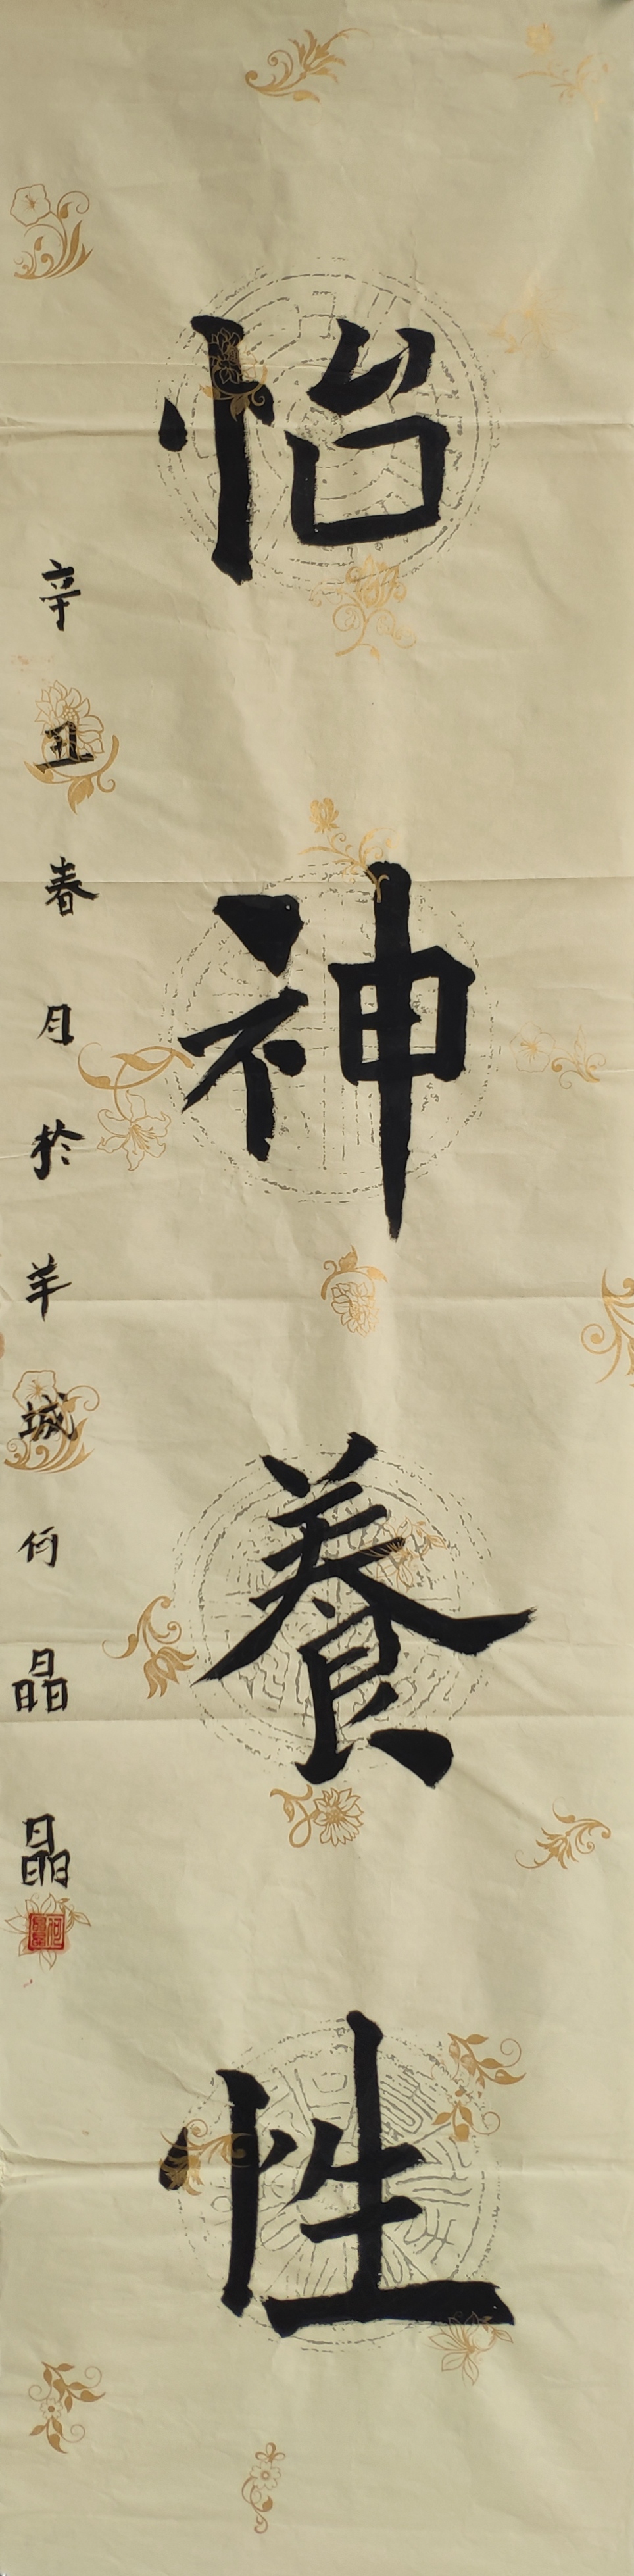 怡神養性
辛丑春月於羊城何晶晶